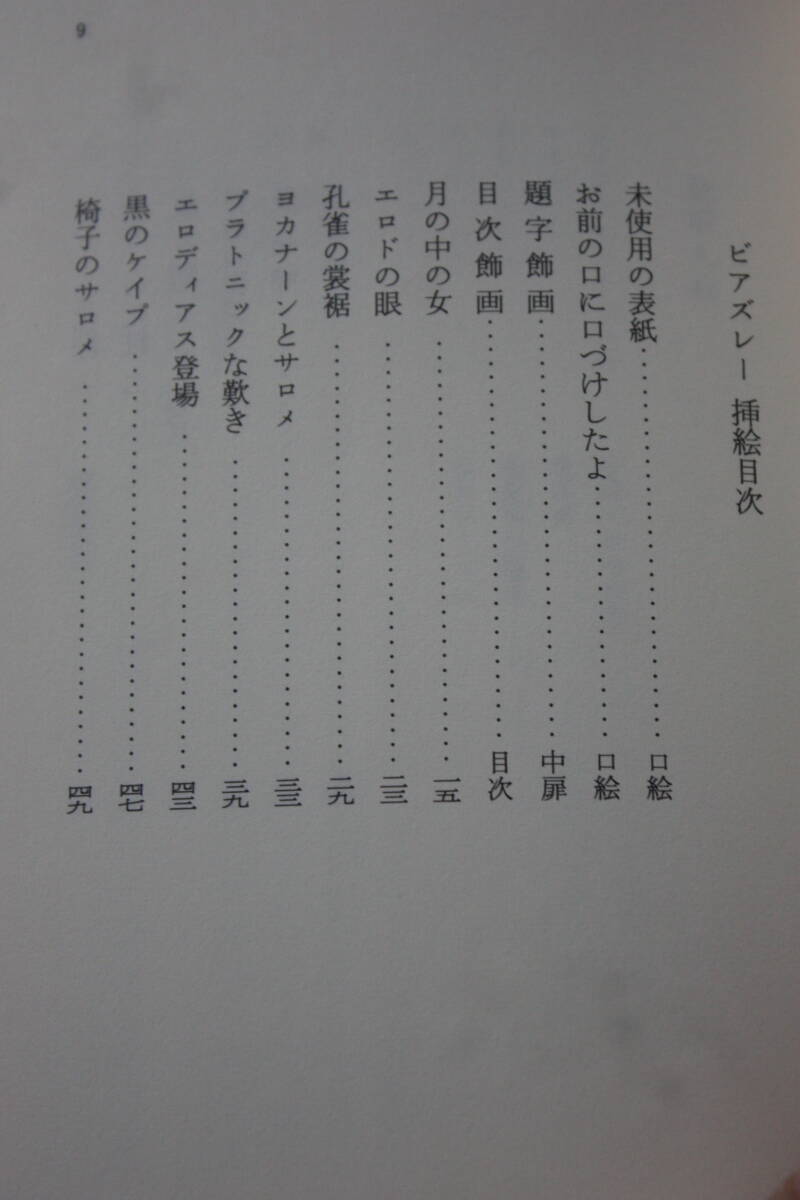 ビアズレー 挿絵目次
未使用の表紙……………………口絵
お前の口に口づけしたよ……………………口絵
題字飾画……………………中扉
目次飾画……………………目次
月の中の女……………………一五
エロドの眼……………………二三
孔雀の裳裾……………………二九
ヨカナーンとサロメ……………………三三
プラトニックな歎き……………………三九
エロディアス登場……………………四三
黒のケイプ……………………四七
椅子のサロメ……………………四九
9